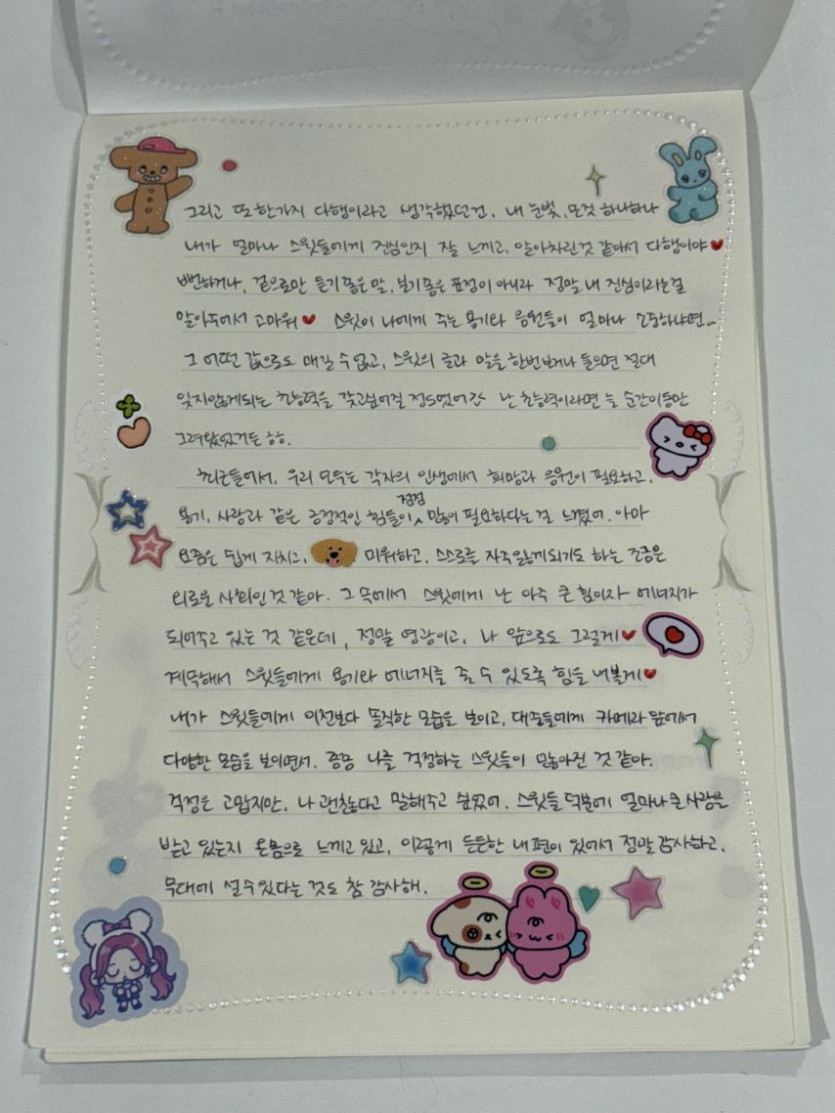 그리고 또한가지 다행이라고 생각했던건, 내 눈빛, 몸짓 하나하나
내가 얼마나 스윗들에게 진심인지 잘 느끼고, 알아차린것 같아서 다행이야
뻔하거나, 겉으로만 듣기좋은 말, 보기좋은 표정이 아니라 정말 내 진심이라는걸
알아주어서 고마워 스윗이 나에게 주는 용기와 응원들이 얼마나 소중하냐면..
그 어떤 값으로도 매길 수 없고, 스윗의 글과 말을 한번보거나 들으면 절대
잊지않게되는 초능력을 갖고싶어질 정도였어 난 초능력이라면 늘 순간이동만
그려왔었거든 ㅎㅎ.
최근들어서, 우리 모두는 각자의 인생에서 희망과 응원이 필요하고,
용기, 사랑과 같은 긍정적인 힘들이 점점 많이 필요하다는 걸 느꼈어. 아마
요즘은 쉽게 지치고, 미워하고, 스스로를 자주잃게되기도 하는 조금은
외로운 사회인것 같아. 그 속에서 스윗에게 난 아주 큰 힘이자 에너지가
되어주고 있는 것 같은데, 정말 영광이고, 나 앞으로도 그럴게
계속해서 스윗들에게 용기와 에너지를 줄 수 있도록 힘을 내볼게
내가 스윗들에게 이전보다 솔직한 모습을 보이고, 대중들에게 카메라 앞에서
다양한 모습을 보이면서. 종종 나를 걱정하는 스윗들이 많아진 것 같아.
걱정은 고맙지만, 나 괜찮다고 말해주고 싶었어. 스윗들 덕분에 얼마나 큰 사랑을
받고 있는지 온몸으로 느끼고 있고, 이렇게 든든한 내편이 있어서 정말 감사하고,
무대에 설 수 있다는 것도 참 감사해.